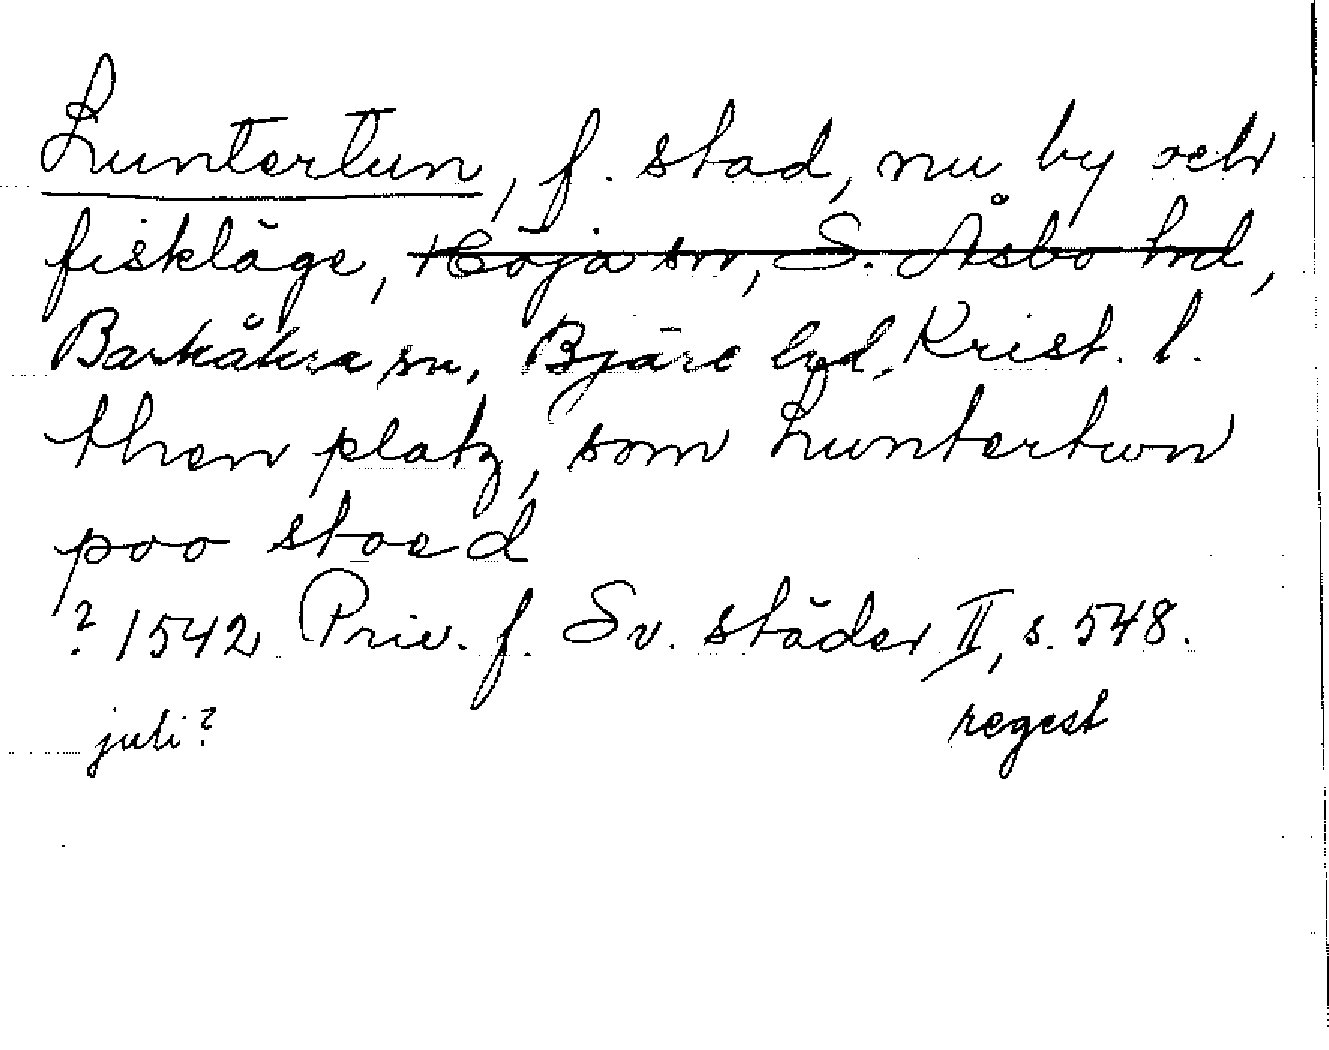 Luntertun, f. stad, nu by och
fiskläge, Höja sn, S. Åsbo hd,
Barkåkra sn, Bjäre hd, Krist. l.
then platz, som Luntertwn
poo stoed
? 1542 Priv. f. Sv. städer II, s. 548.
juli? regest